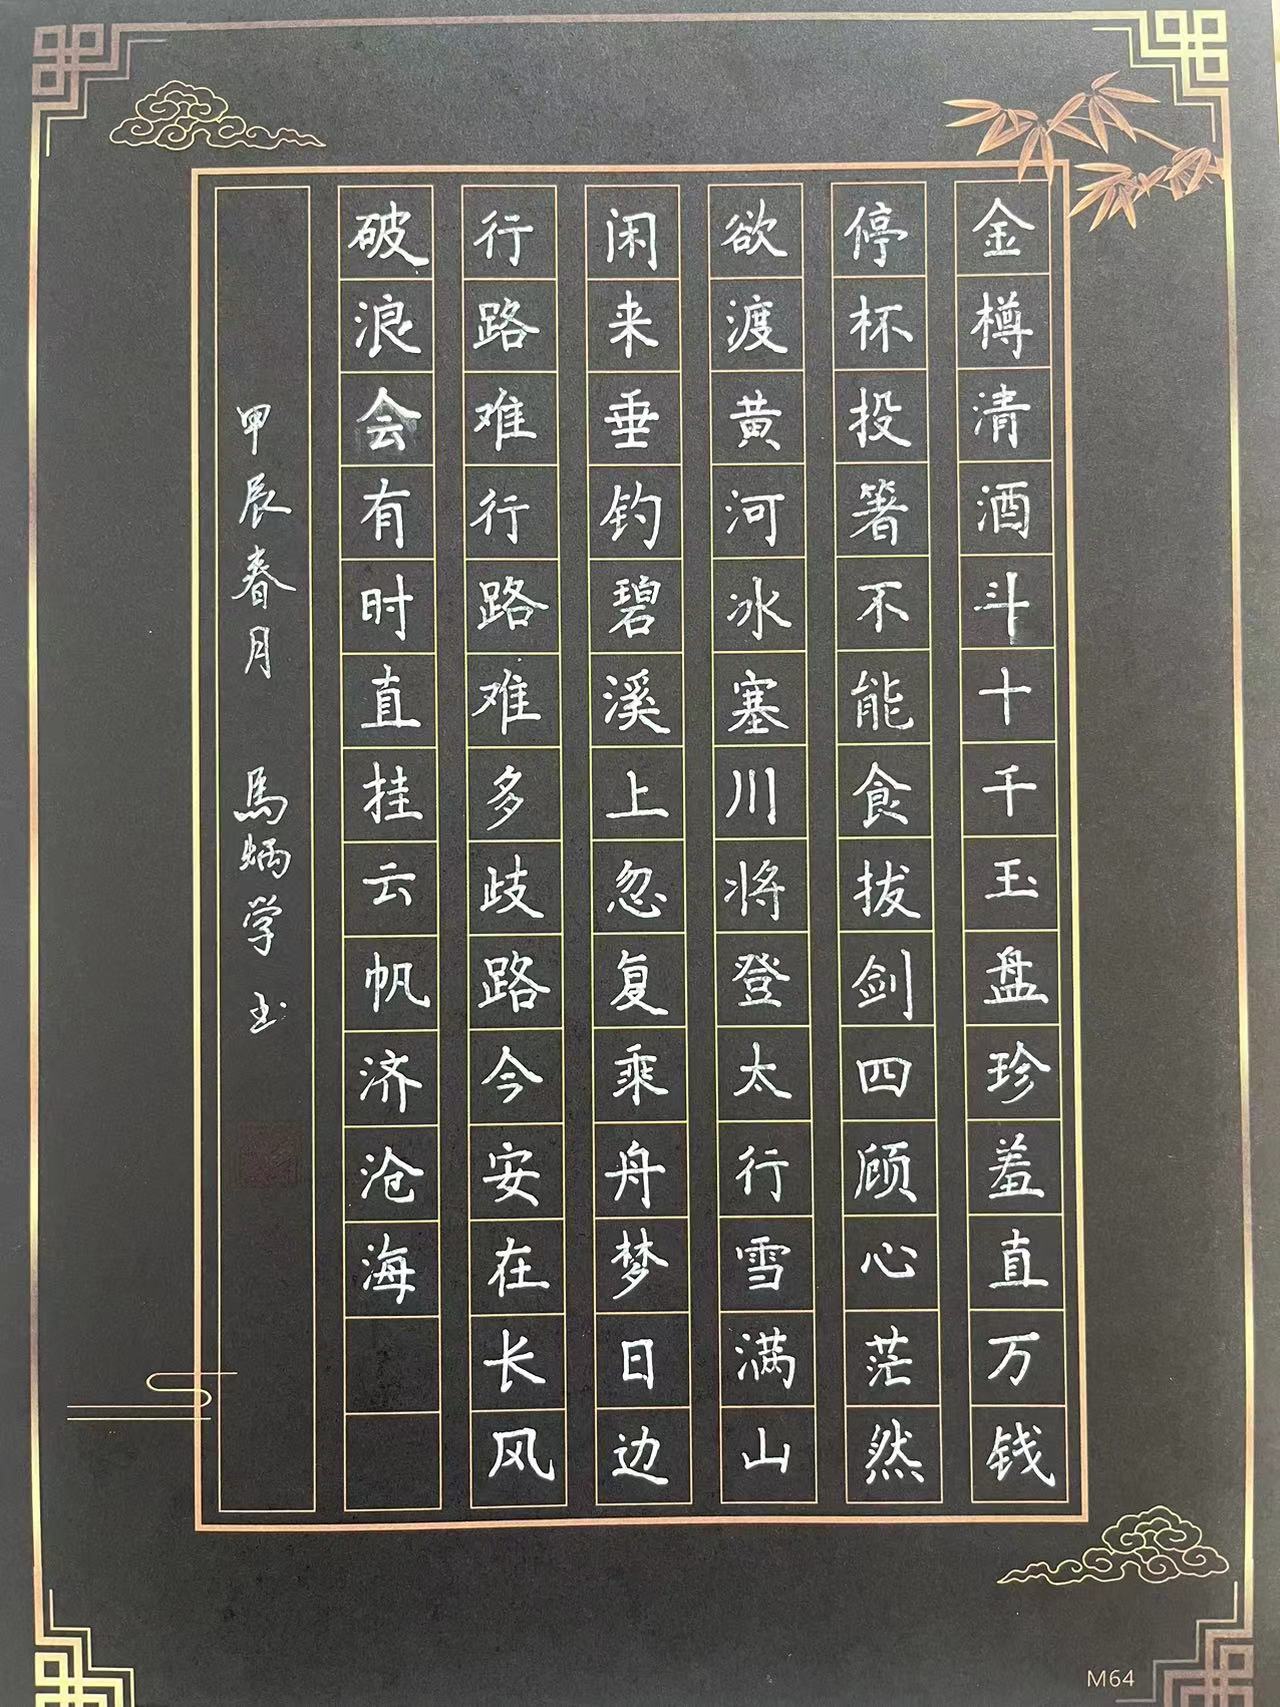 金樽清酒斗十千玉盘珍羞直万钱
停杯投箸不能食拔剑四顾心茫然
欲渡黄河冰塞川将登太行雪满山
闲来垂钓碧溪上忽复乘舟梦日边
行路难行路难多歧路今安在长风
破浪会有时直挂云帆济沧海
甲辰春月 馬炳学书
M64